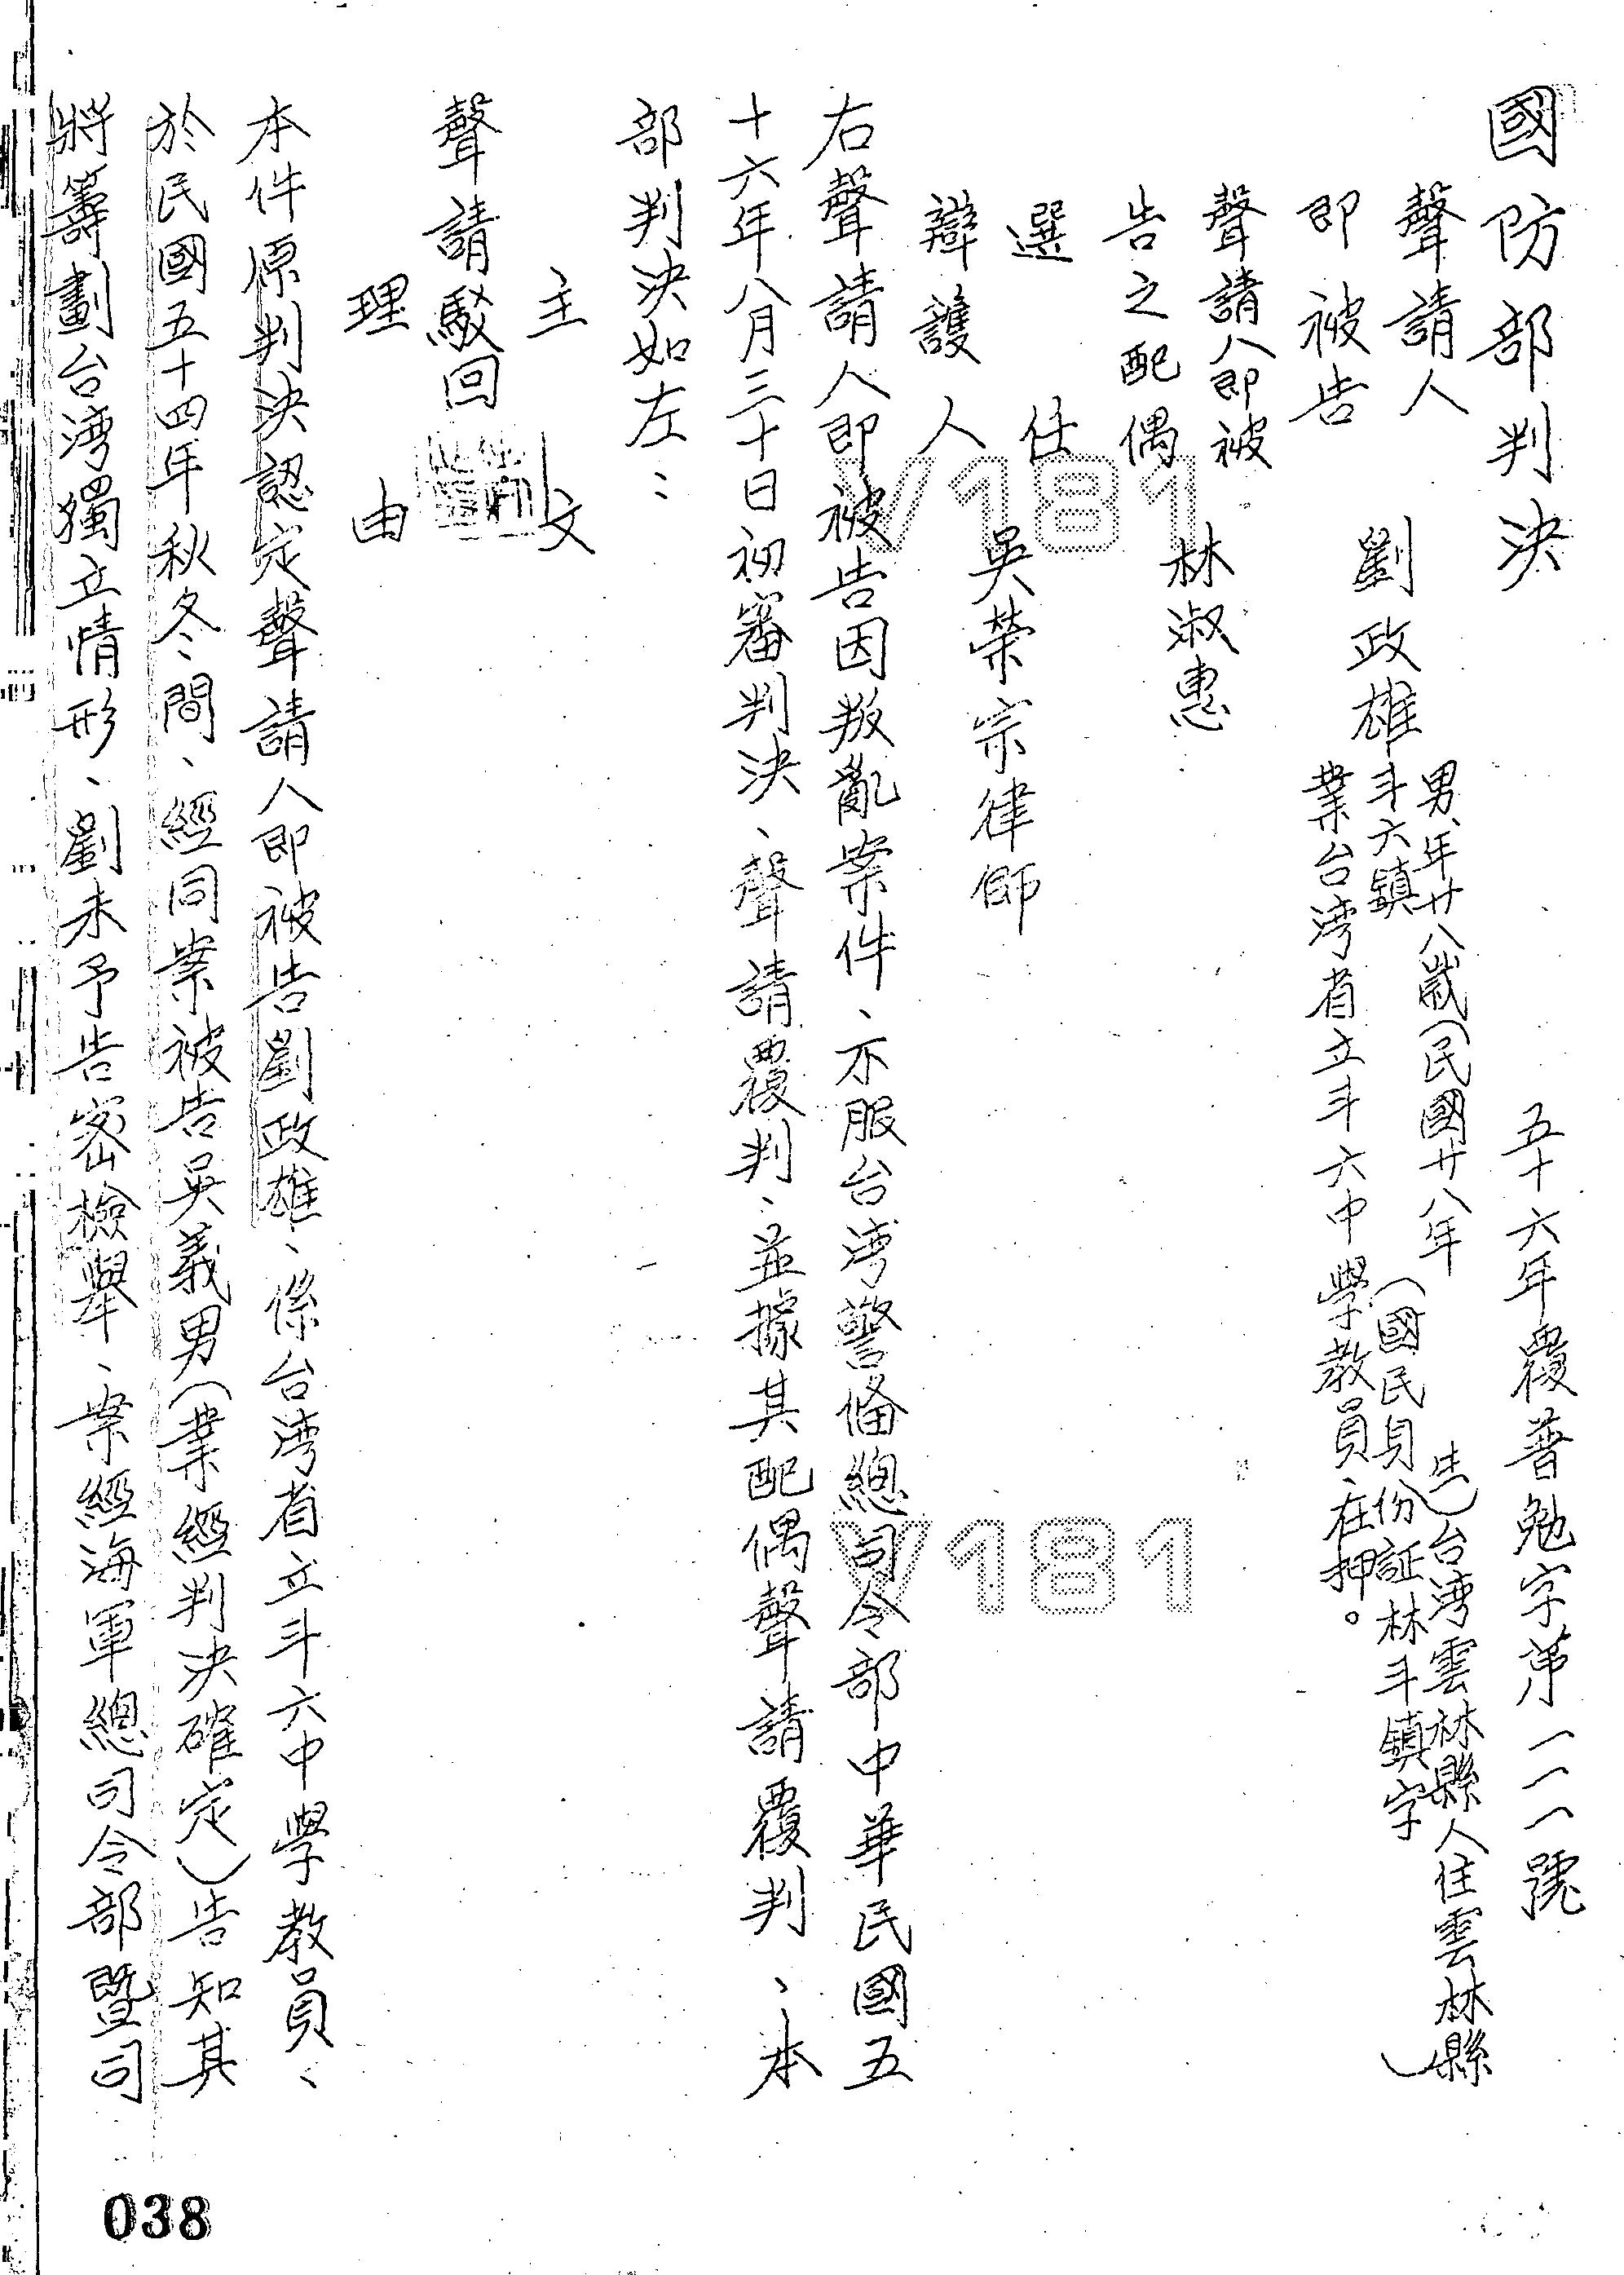 國防部判決
五十六年覆普勉字第一一一號
聲請人
即被告
劉政雄
男、年廿八歲(民國廿八年
生)台湾雲林縣人住雲林縣
斗六鎮
(國民身份証林斗鎮字
)
業台湾省立斗六中學教員、在押。
聲請人即被
告之配偶
林淑惠
選任
辯護人
吳榮宗律師
右聲請人即被告因叛亂案件、不服台湾警俻總司令部中華民國五
十六年八月三十日初審判決、聲請覆判、並據其配偶聲請覆判、本
部判決如左：
主文
聲請駁回
理由
本件原判決認定聲請人即被告劉政雄、係台湾省立斗六中學教員、
於民國五十四年秋冬間、經同案被告吳義男(業經判決確定)告知其
將籌劃台湾獨立情形、劉未予告密檢舉、案經海軍總司令部暨司
V181
V181
038